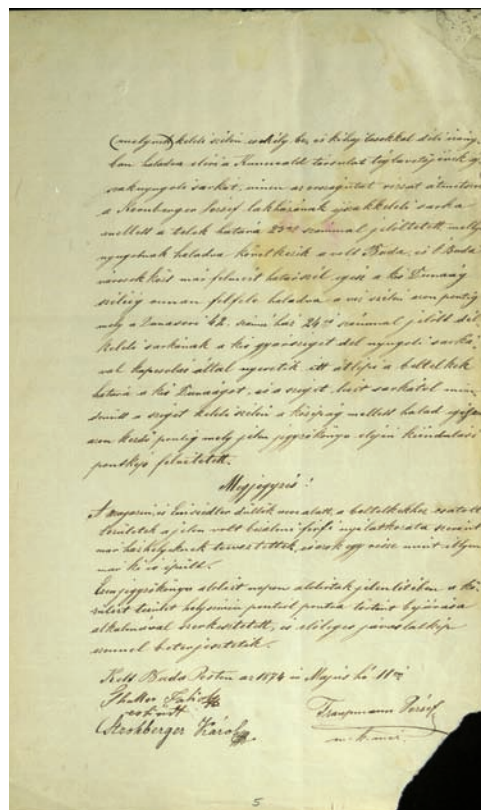 (melynek) keleti szélén csekély be, és kihajlásokkal déli irány-
ban haladva eléri a Kunewalder társulat téglavetőjének éj-
szaknyugoti sarkát, innen az országutat rézsut átmetszve
a Nernberger József lakházának éjszakkeleti sarka
mellett a telek határa 23as számmal jelöltetett, melly
nyugotnak haladva következik a volt Buda, és ó Buda
városok közt már felmért határszél egész a kis Dunaág
széléig annan felfelé haladva a víz szélén azon pontig
mely a Zanaseri 42. számú ház 24es számmal jelölt dél
keleti sarkának a kis gyársziget dél nyugoti sarká-
val kapcsolás által nyeretik, itt átlépi a beltelkek
határa a kis Dunaágot, és a sziget leirt sarkától mind
a sziget keleti szélén a középág mellett halad
azon kezdő pontig mely jelen jegyzőkönyv elején kiindulási
pontkép felvétetett.
Megjegyzés!
A majorsi, és dűllők neve alatt, a beltelkekhez csatolt
területek a jelen volt bizalmi férfi nyilatkozata szerint
már házhelyeknek terveztettek, és azok egy része mint illyen
már ki is épült.
Ezen jegyzőkönyv alólirt napon alólirtak jelenlétében a kö-
rülirt terület helyszinén pontról pontra történt bejárása
alkalmával szerkesztetett, és előleges javaslatkép
ezennel beterjesztetik.
Kelt Buda Pesten az 1874 év Május hó 11én
esküdt
Strohberger Károly
József
mérnök
5